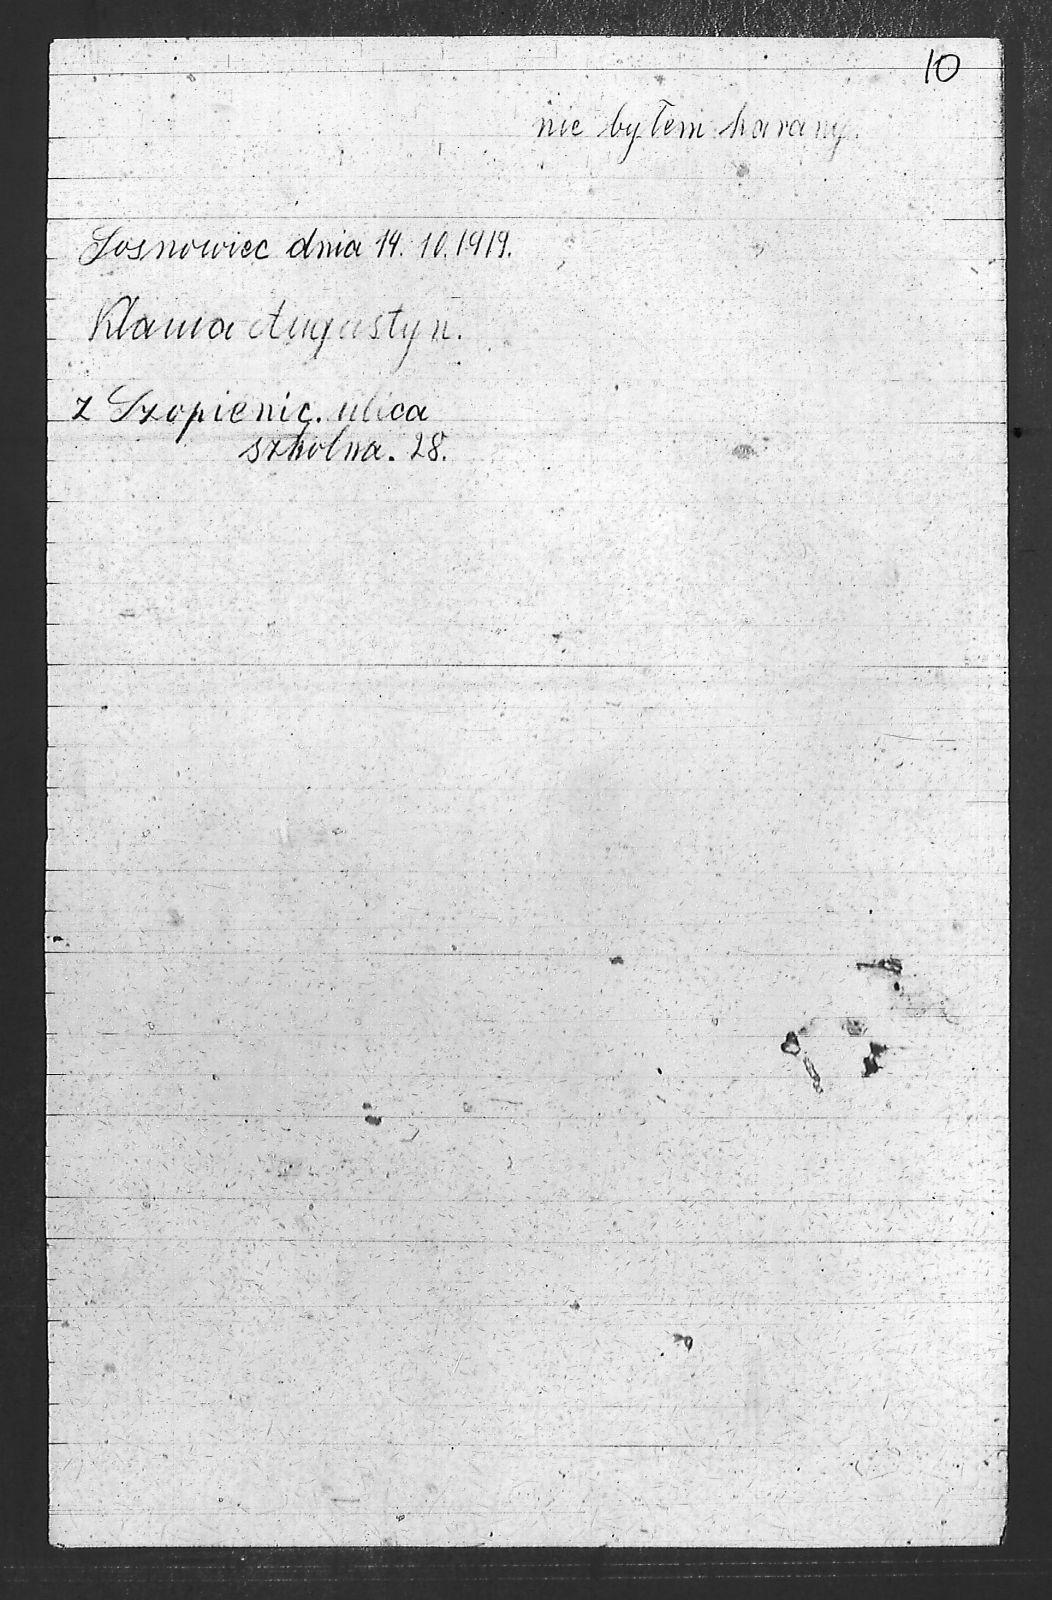 10
nie byłem karany.
Sosnowiec dnia 14. 10. 1919.
Klama Augustyn.
z Szopienic. ulica
szkolna. 28.